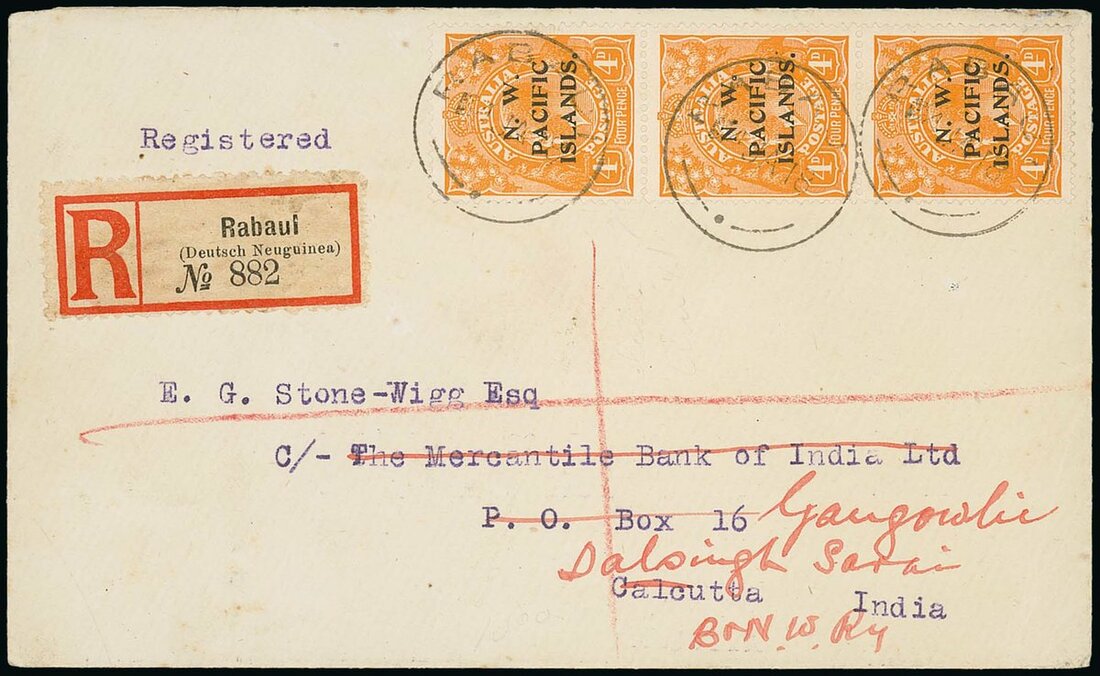 AUSTRALIA POSTAGE 4D 4D FOUR PENCE
N. W.
PACIFIC
ISLANDS.
AUSTRALIA POSTAGE 4D 4D FOUR PENCE
N. W.
PACIFIC
ISLANDS.
AUSTRALIA POSTAGE 4D 4D FOUR PENCE
N. W.
PACIFIC
ISLANDS.
Registered
R
Rabaul
(Deutsch Neuguinea)
№ 882
E. G. Stone-Wigg Esq
C/- The Mercantile Bank of India Ltd
P. O. Box 16 Gangowlie
Dalsingh Sarai
Calcutta India
B & N. W. Ry